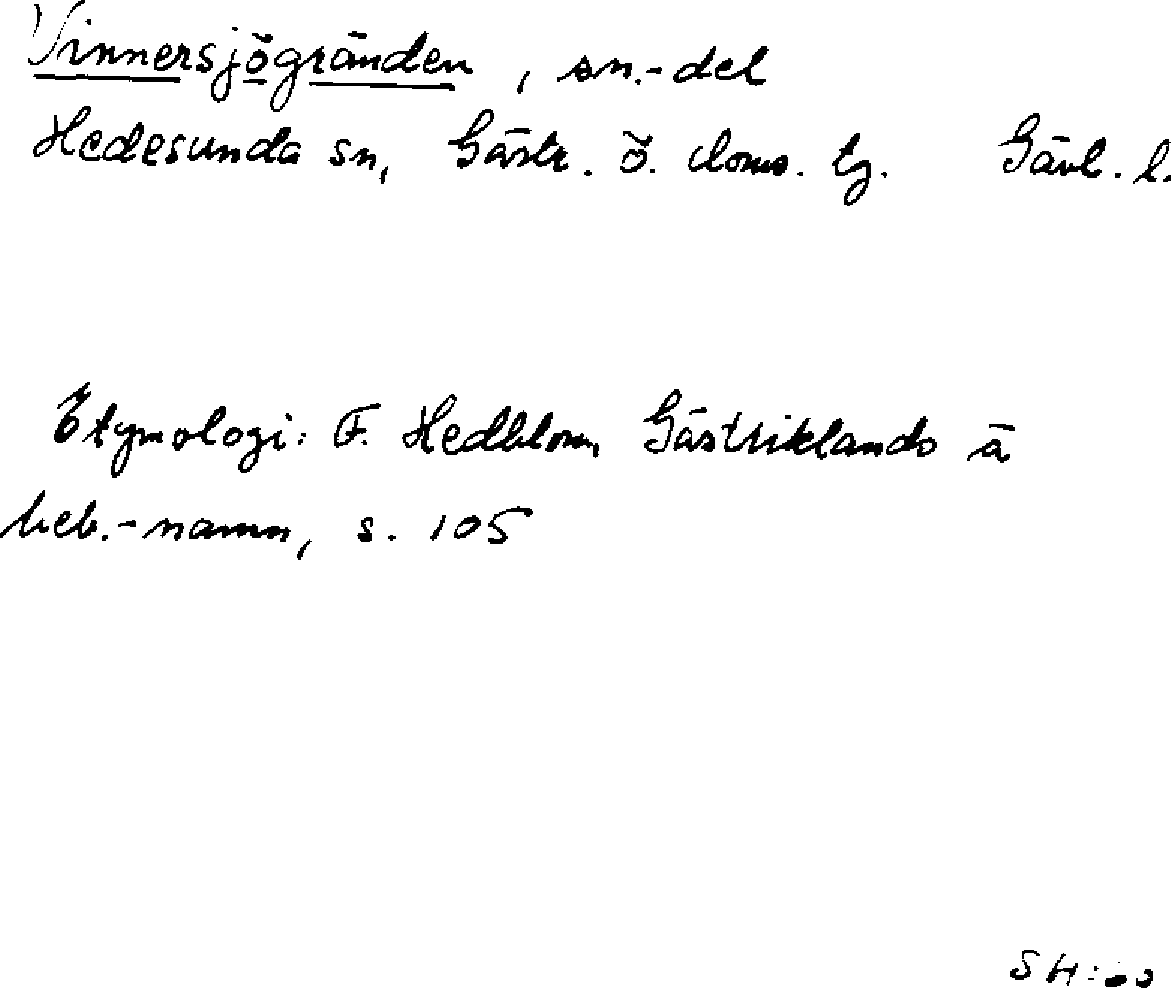 Vinnersjögränden, sn.-del
Hedesunda sn, Gästr. ö. doms. tg. Gävl. l.
Etymologi: F. Hedblom, Gästriklands ä
beb.-namn, s. 105
SH: